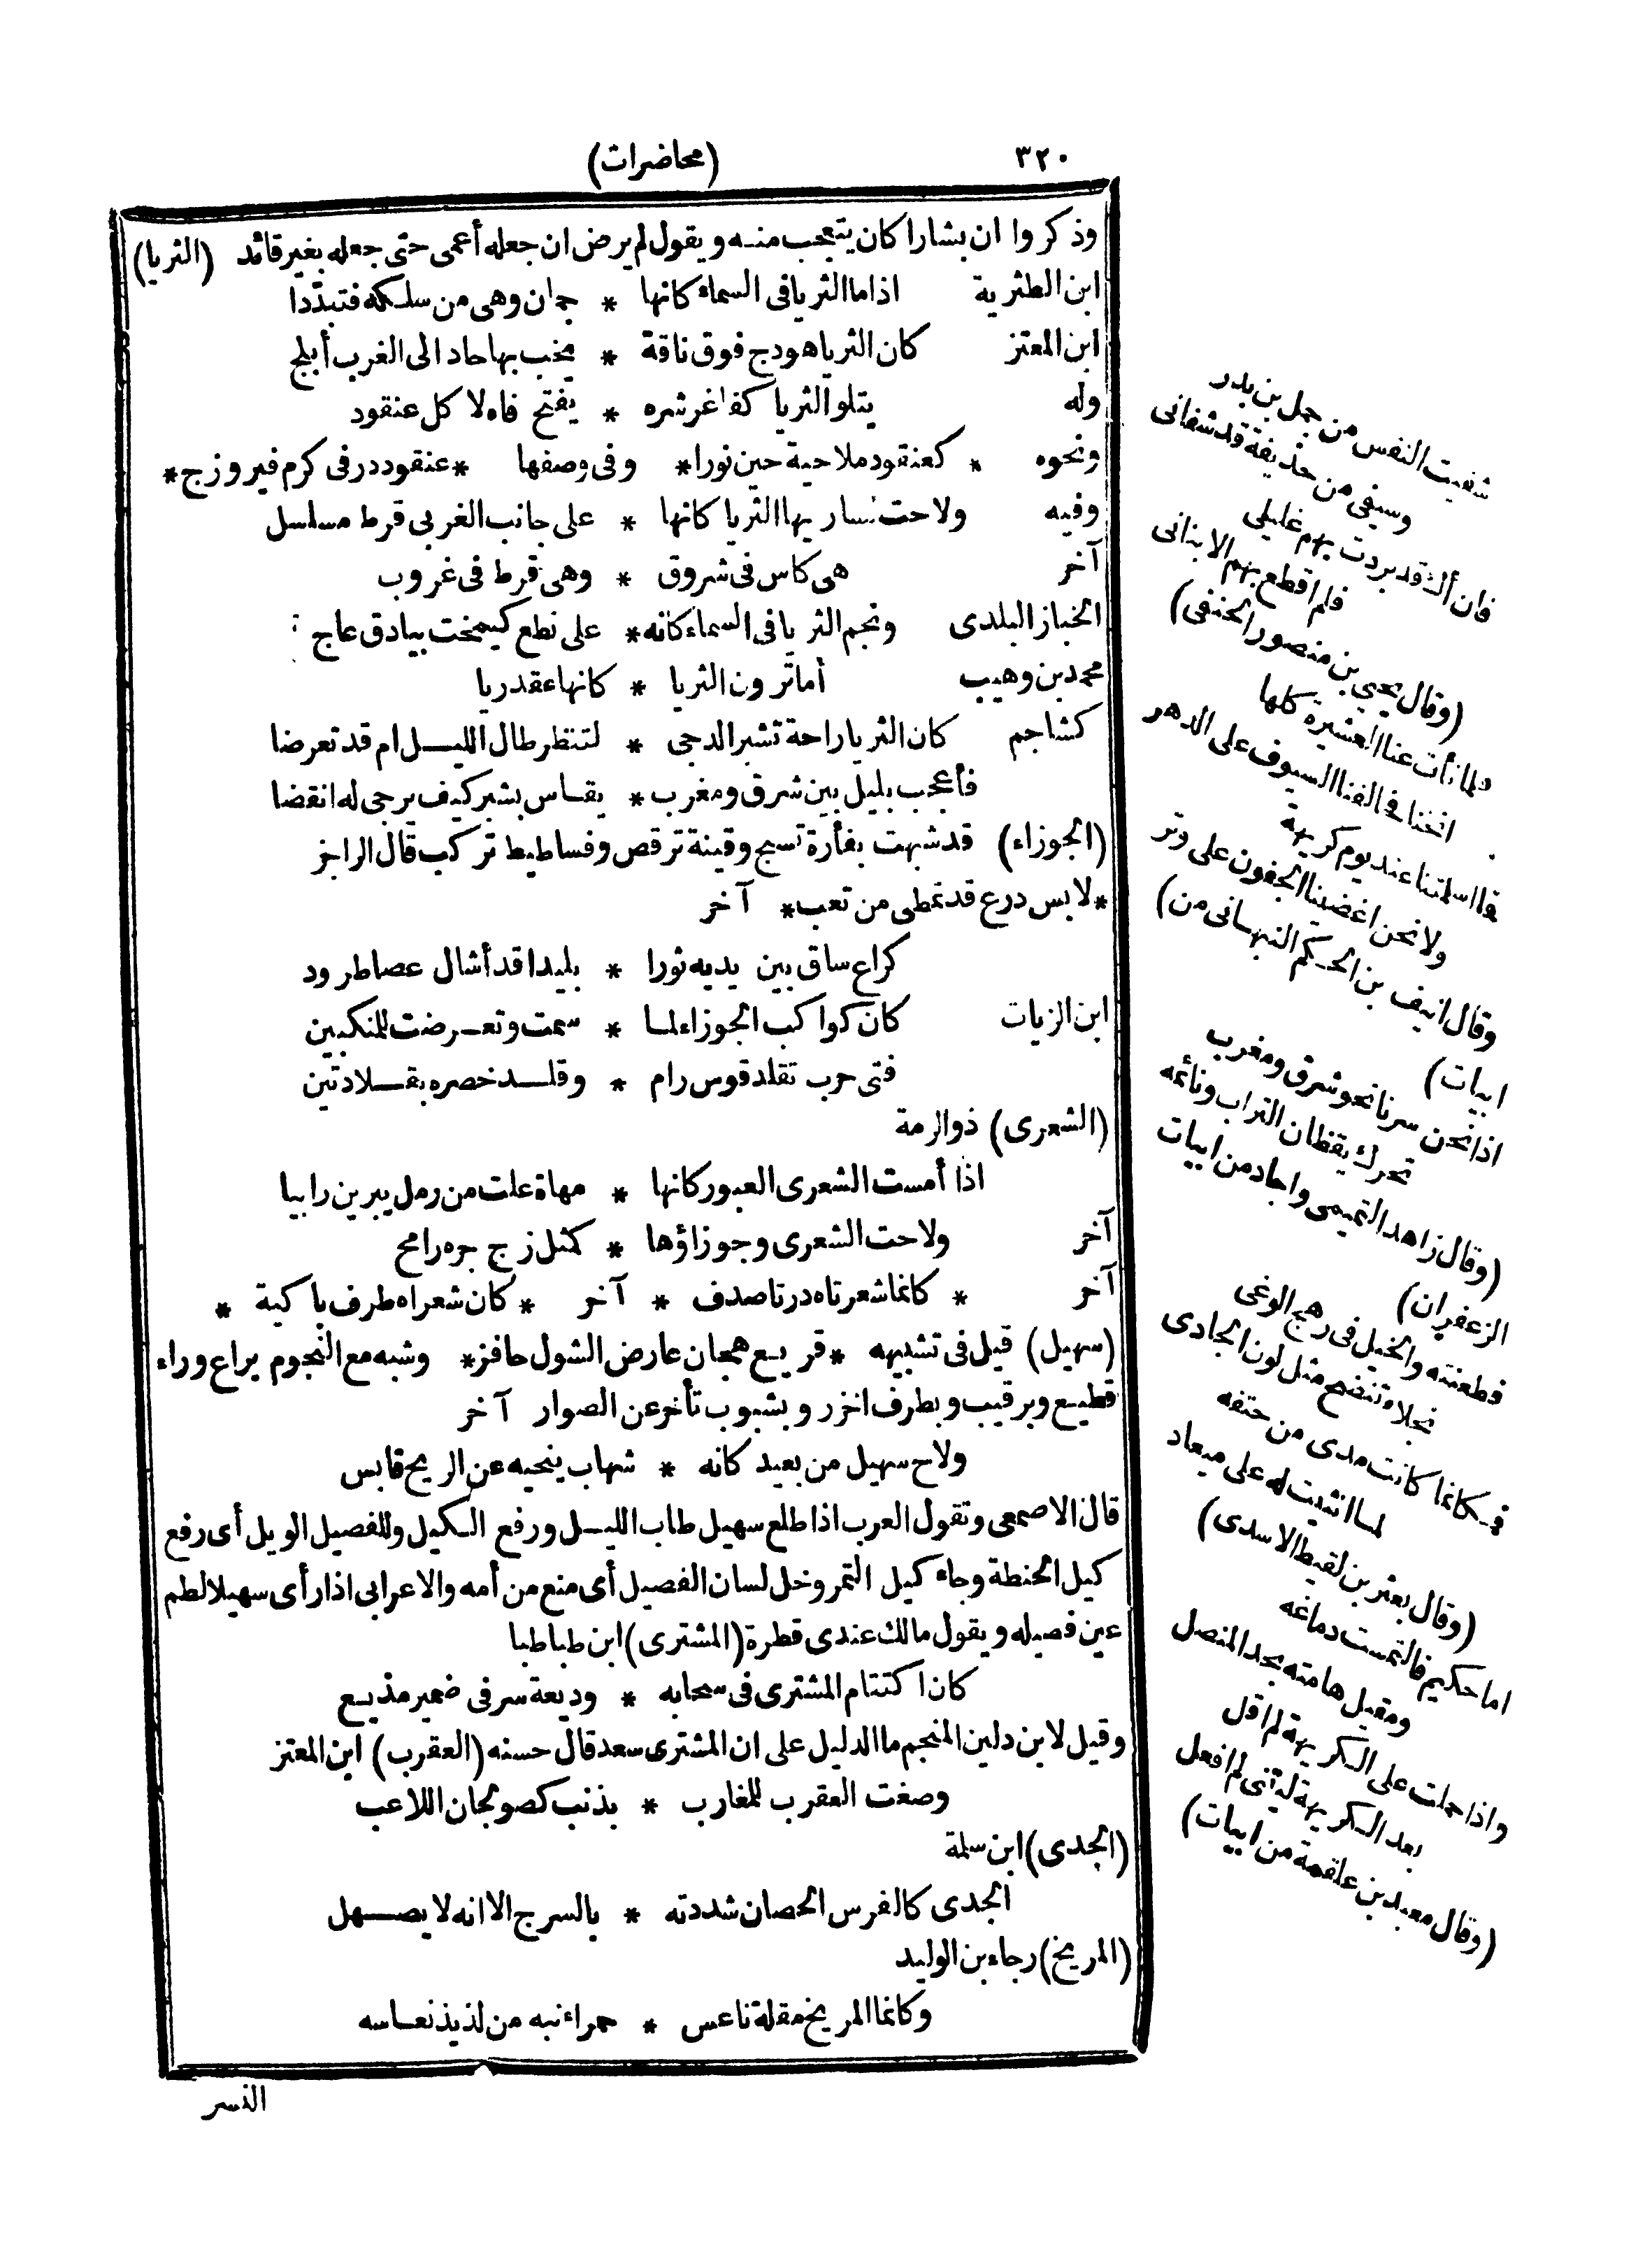 ٣٢٠
(محاضرات)
وذكروا ان بشارا كان يتعجب منه ويقول لم يرض ان جعله أعمى حتى جعله بغير قائد (الثريا)
ابن الطثرية اذا ما الثريا فى السماء كانها * جمان وهى من سلكه فتبددا
ابن المعتز كان الثريا هودج فوق ناقة * يخب بها حاد الى الغرب أبلج
وله يتلو الثريا كفاغر شره * يفتح فاه لاكل عنقود
ونحوه * كعنقود ملاحية حين نورا * وفى وصفها * عنقود در فى كرم فيروزج *
وفيه ولاحت لساريها الثريا كانها * على جانب الغربى قرط مسلسل
آخر هى كاس فى شروق * وهى قرط فى غروب
الخباز البلدى ونجم الثريا فى السماء كانه * على نطع كيمخت بيادق عاج
محمد بن وهيب أما ترون الثريا * كانها عقد ريا
كشاجم كان الثريا راحة تشبر الدجى * لتنظر طال الليل ام قد تعرضا
فأعجب بليل بين شرق ومغرب * يقاس بشبر كيف يرجى له انقضا
(الجوزاء) قد شبهت بفأرة تسبح وقينة ترقص وفساطيط تركب قال الراجز
* لابس درع قد تمطى من تعب * آخر
كراع ساق بين يديه ثورا * بليدا قد أشال عصا طرود
ابن الزيات كان كواكب الجوزاء لما * سمت وتعرضت للمنكبين
فتى حرب تقلد قوس رام * وقلد خصره بقلادتين
(الشعرى) ذو الرمة
اذا أمست الشعرى العبور كانها * مهاة علت من رمل يبرين رابيا
آخر ولاحت الشعرى وجوزاؤها * كمثل زج جره رامح
آخر * كانما شعرتاه درتا صدف * آخر * كان شعراه طرف باكية *
(سهيل) قيل فى تشبيهه * قريع هجان عارض الشول حافز * وشبه مع النجوم براع وراء
قطيع وبرقيب وبطرف اخزر وبشبوب تأخر عن الصوار آخر
ولاح سهيل من بعيد كانه * شهاب ينحيه عن الريح قابس
قال الاصمعى وتقول العرب اذا طلع سهيل طاب الليل ورفع الكيل وللفصيل الويل أى رفع
كيل الحنطة وجاء كيل التمر وخل لسان الفصيل أى منع من أمه والاعرابى اذا رأى سهيلا لطم
عين فصيله ويقول مالك عندى قطرة (المشترى) ابن طباطبا
كان اكتتام المشترى فى سحابه * وديعة سر فى ضمير مذيع
وقيل لابن دلين المنجم ما الدليل على ان المشترى سعد قال حسنه (العقرب) ابن المعتز
وصغت العقرب للمغارب * بذنب كصولجان اللاعب
(الجدى) ابن سلمة
الجدى كالفرس الحصان شددته * بالسرج الا انه لا يصهل
(المريخ) رجاء بن الوليد
وكانما المريخ مقلة ناعس * حمراء نبه من لذيذ نعاسه
النسر
شفيت النفس من حمل بن بدر
وسيفى من حذيفة قد شفانى
فان أك قد بردت بهم غليلى
فلم اقطع بهم الا بنانى
(وقال يحيى بن منصور الحنفى)
فلما نأت عنا العشيرة كلها
انخنا فحالفنا السيوف على الدهر
فما اسلمتنا عند يوم كريهة
ولا نحن اغضينا الجفون على وتر
وقال انيف بن الحكم النبهانى من)
ابيات)
اذا نحن سرنا نحو شرق ومغرب
تحرك يقظان التراب ونائمه
(وقال زاهد التميمى واجاد من ابيات
الزعفران)
فطعنته والخيل فى رهج الوغى
نجلاء تنضح مثل لون الجادى
فكانما كانت مدى من حتفه
لما انثنيت له على ميعاد
(وقال بعثر بن لقيط الاسدى)
اما حكيم فالتمست دماغه
ومقيل هامته بحد المنصل
واذا حملت على الكريهة لم اقل
بعد الكريهة ليتنى لم افعل
(وقال معبد بن علقمة من ابيات)